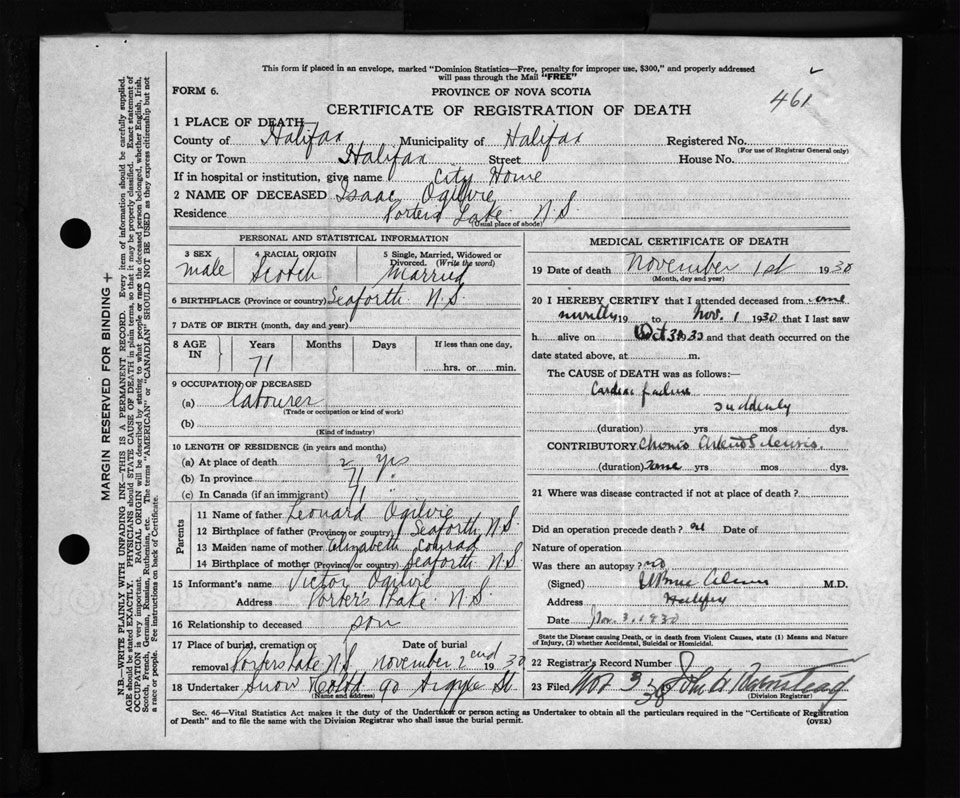 This form if placed in an envelope, marked "Dominion Statistics—Free, penalty for improper use, $300," and properly addressed
will pass through the Mail "FREE"
FORM 6.
PROVINCE OF NOVA SCOTIA
461
CERTIFICATE OF REGISTRATION OF DEATH
1 PLACE OF DEATH
County of Halifax Municipality of Halifax Registered No.
(For use of Registrar General only)
City or Town Halifax Street House No.
If in hospital or institution, give name City Home
2 NAME OF DECEASED Isaac Ogilvie
Residence Porters Lake N.S
(Usual place of abode)
PERSONAL AND STATISTICAL INFORMATION
3 SEX 4 RACIAL ORIGIN 5 Single, Married, Widowed or Divorced. (Write the word)
male Scotch Married
6 BIRTHPLACE (Province or country) Seaforth N.S.
7 DATE OF BIRTH (month, day and year)
8 AGE IN Years Months Days If less than one day,
71 hrs. or min.
9 OCCUPATION OF DECEASED
(a) labourer
(Trade or occupation or kind of work)
(b)
(Kind of industry)
10 LENGTH OF RESIDENCE (in years and months)
(a) At place of death 2 yrs
(b) In province 71 "
(c) In Canada (if an immigrant) 71 "
Parents
11 Name of father Leonard Ogilvie
12 Birthplace of father (Province or country) Seaforth N.S.
13 Maiden name of mother Elizabeth Conrad
14 Birthplace of mother (Province or country) Seaforth N.S
15 Informant's name Victor Ogilvie
Address Porter's Lake N.S.
16 Relationship to deceased son
17 Place of burial, cremation or removal Porters Lake N.S. Date of burial november 2nd 1930
18 Undertaker Snow 90 Argyle St.
(Name and address)
MEDICAL CERTIFICATE OF DEATH
19 Date of death November 1st 1930
(Month, day and year)
20 I HEREBY CERTIFY that I attended deceased from
19 to Nov. 1 1930 that I last saw
h alive on Oct 31 30 and that death occurred on the
date stated above, at m.
The CAUSE of DEATH was as follows:—
Cardiac failure
suddenly
(duration) yrs mos dys.
CONTRIBUTORY Chronic
(duration) yrs mos dys.
21 Where was disease contracted if not at place of death?
Did an operation precede death? Date of
Nature of operation
Was there an autopsy? no
(Signed) M.D.
Address Halifax
Date Nov. 3. 1930
State the Disease causing Death, or in death from Violent Causes, state (1) Means and Nature
of Injury, (2) whether Accidental, Suicidal or Homicidal.
22 Registrar's Record Number
23 Filed Nov 3/30 John H
(Division Registrar)
Sec. 46—Vital Statistics Act makes it the duty of the Undertaker or person acting as Undertaker to obtain all the particulars required in the "Certificate of Registration
of Death" and to file the same with the Division Registrar who shall issue the burial permit.
(OVER)
MARGIN RESERVED FOR BINDING
N.B.—WRITE PLAINLY WITH UNFADING INK—THIS IS A PERMANENT RECORD. Every item of information should be carefully supplied.
AGE should be stated EXACTLY. PHYSICIANS should STATE CAUSE OF DEATH in plain terms, so that it may be properly classified. Exact statement of
OCCUPATION is very important. RACIAL ORIGIN will be described by stating to what people or race the deceased person belonged, whether English, Irish,
Scotch, French, German, Russian, Ruthenian, etc. The terms "AMERICAN" or "CANADIAN" SHOULD NOT BE USED as they express citizenship but not
a race or people. See instructions on back of Certificate.